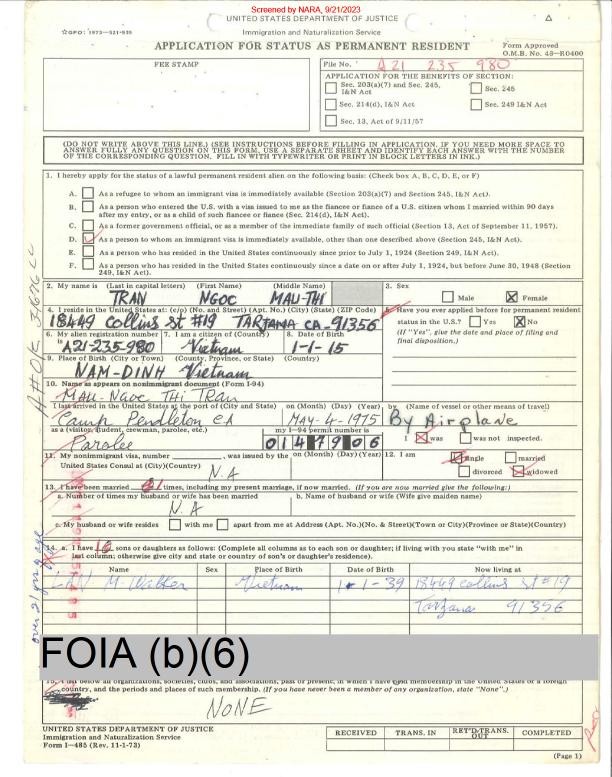 Screened by NARA, 9/21/2023
UNITED STATES DEPARTMENT OF JUSTICE
☆GPO: 1973—521-935
Immigration and Naturalization Service
APPLICATION FOR STATUS AS PERMANENT RESIDENT
Form Approved
O.M.B. No. 43-R0400
FEE STAMP
File No. A21 235 980
APPLICATION FOR THE BENEFITS OF SECTION:
Sec. 203(a)(7) and Sec. 245, I&N Act
Sec. 245
Sec. 214(d), I&N Act
Sec. 249 I&N Act
Sec. 13, Act of 9/11/57
(DO NOT WRITE ABOVE THIS LINE.) (SEE INSTRUCTIONS BEFORE FILLING IN APPLICATION. IF YOU NEED MORE SPACE TO
ANSWER FULLY ANY QUESTION ON THIS FORM, USE A SEPARATE SHEET AND IDENTIFY EACH ANSWER WITH THE NUMBER
OF THE CORRESPONDING QUESTION. FILL IN WITH TYPEWRITER OR PRINT IN BLOCK LETTERS IN INK.)
1. I hereby apply for the status of a lawful permanent resident alien on the following basis: (Check box A, B, C, D, E, or F)
A. As a refugee to whom an immigrant visa is immediately available (Section 203(a)(7) and Section 245, I&N Act).
B. As a person who entered the U.S. with a visa issued to me as the fiancee or fiance of a U.S. citizen whom I married within 90 days
after my entry, or as a child of such fiancee or fiance (Sec. 214(d), I&N Act).
C. As a former government official, or as a member of the immediate family of such official (Section 13, Act of September 11, 1957).
D. As a person to whom an immigrant visa is immediately available, other than one described above (Section 245, I&N Act).
E. As a person who has resided in the United States continuously since prior to July 1, 1924 (Section 249, I&N Act).
F. As a person who has resided in the United States continuously since a date on or after July 1, 1924, but before June 30, 1948 (Section
249, I&N Act).
2. My name is (Last in capital letters) (First Name) (Middle Name)
TRAN NGOC MAU-THI
3. Sex
Male X Female
4. I reside in the United States at: (c/o) (No. and Street) (Apt. No.) (City) (State) (ZIP Code)
18449 Collins St #19 TARZANA CA 91356
Have you ever applied before for permanent resident
status in the U.S.? Yes X No
(If "Yes", give the date and place of filing and
final disposition.)
6. My alien registration number is A21-235-980
7. I am a citizen of (Country) Vietnam
8. Date of Birth 1-1-15
9. Place of Birth (City or Town) (County, Province, or State) (Country)
NAM-DINH Vietnam
10. Name as appears on nonimmigrant document (Form I-94)
MAU-Ngoc THI TRAN
I last arrived in the United States at the port of (City and State) on (Month) (Day) (Year) by (Name of vessel or other means of travel)
Camp Pendleton CA MAY-4-1975 By Airplane
as a (visitor, student, crewman, parolee, etc.) my I-94 permit number is
Parolee 0147906
I X was was not inspected.
11. My nonimmigrant visa, number , was issued by the on (Month) (Day) (Year)
United States Consul at (City)(Country) N.A
12. I am single married
divorced widowed
13. I have been married 1 times, including my present marriage, if now married. (If you are now married give the following:)
a. Number of times my husband or wife has been married
N.A
b. Name of husband or wife (Wife give maiden name)
c. My husband or wife resides with me apart from me at Address (Apt. No.)(No. & Street)(Town or City)(Province or State)(Country)
14. a. I have sons or daughters as follows: (Complete all columns as to each son or daughter; if living with you state "with me" in
last column; otherwise give city and state or country of son's or daughter's residence).
Name Sex Place of Birth Date of Birth Now living at
M. Walker Vietnam 1-1-39 18449 collins st #19
Tarzana 91356
over 21 yrs of age
FOIA (b)(6)
15. I list below all organizations, societies, clubs, and associations, past or present, in which I have held membership in the United States or a foreign
country, and the periods and places of such membership. (If you have never been a member of any organization, state "None".)
NONE
UNITED STATES DEPARTMENT OF JUSTICE
Immigration and Naturalization Service
Form I-485 (Rev. 11-1-73)
RECEIVED TRANS. IN RET'D-TRANS. OUT COMPLETED
(Page 1)